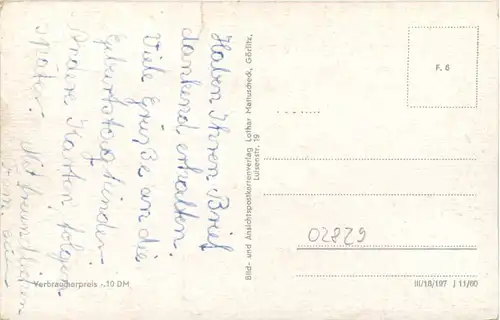 Haben Ihren Brief
dankend erhalten.
Viele Grüße an die
Geburtstagskinder.
Andere Karten folgen
später. Mit freundlichen
Bild- und Ansichtspostkartenverlag Lothar Mattuscheck, Görlitz,
Luisenstr. 19
F. 6
02829
Verbraucherpreis -.10 DM
III/18/197 J 11/60